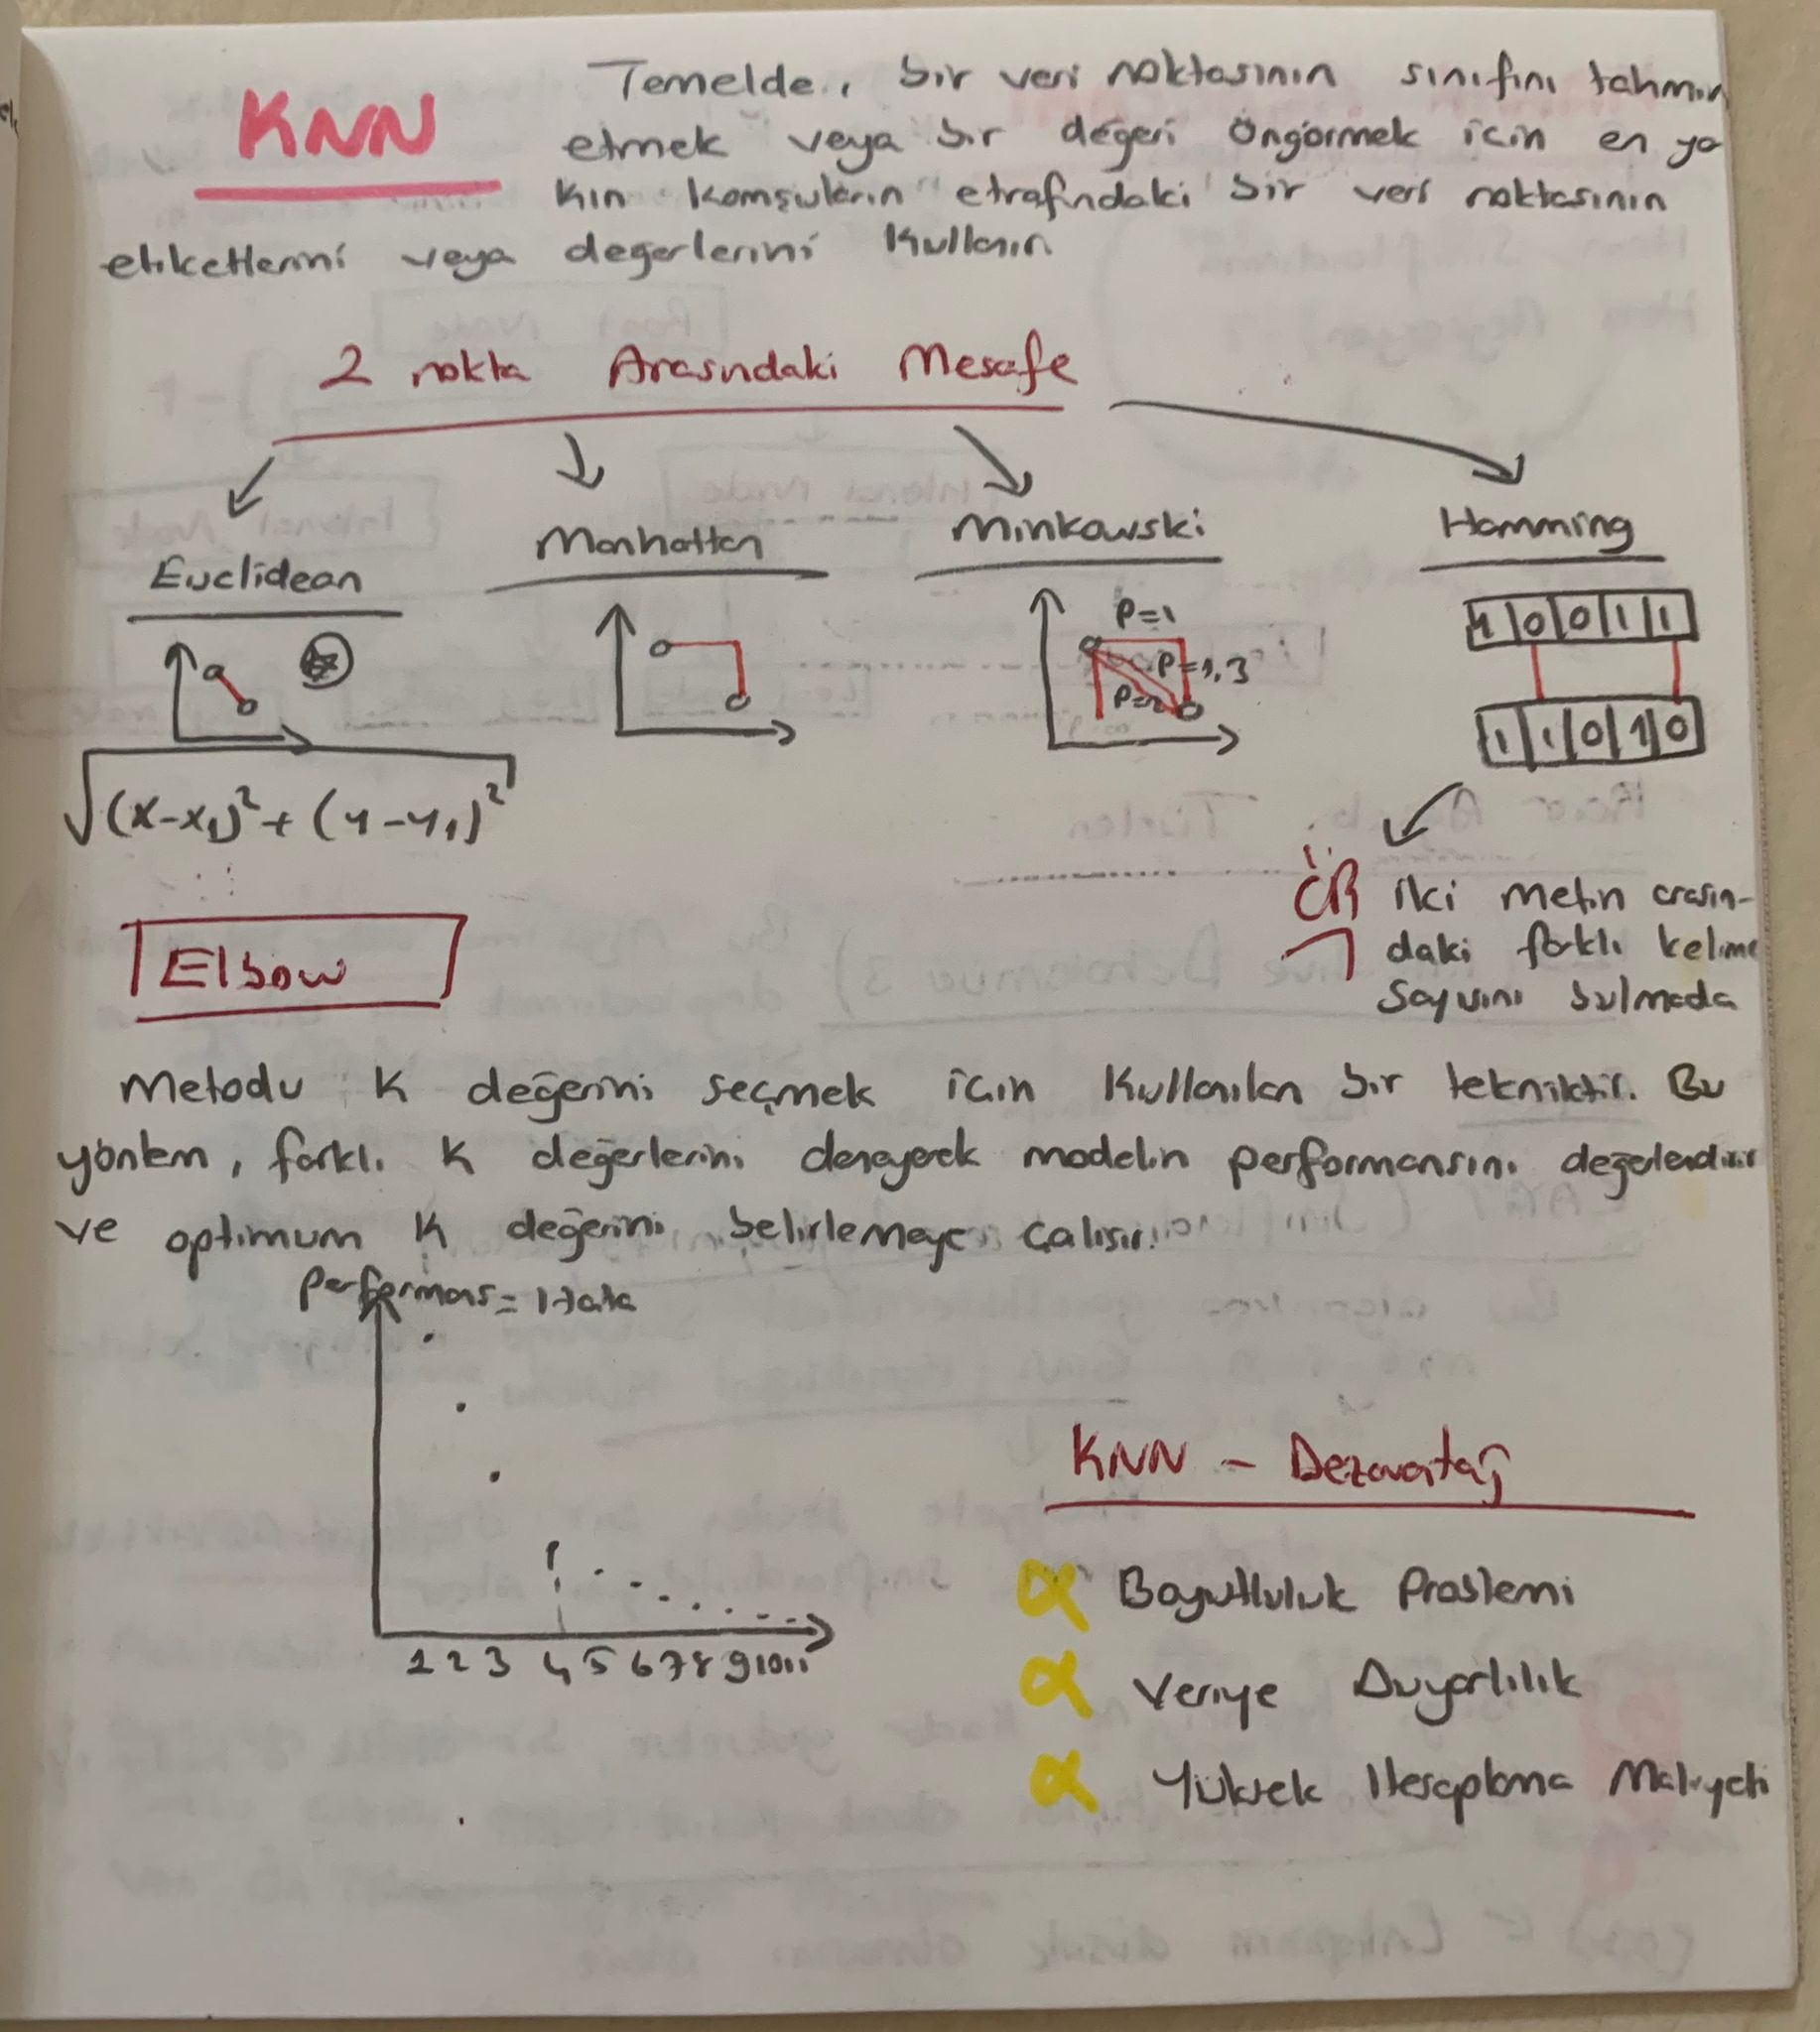 KNN
Temelde, bir veri noktasının sınıfını tahmin
etmek veya bir değeri öngörmek için en ya
kın komşuların etrafındaki bir veri noktasının
etiketlerini veya değerlerini kullanır.
2 nokta Arasındaki Mesafe
Euclidean
Manhattan
Minkowski
Hamming
P=1
P=1,3
P=2
1 0 0 1 1
1 1 0 1 0
√(x-x₁)²+(y-y₁)²
iki metin arasın-
daki farklı kelime
sayısını bulmada
Elbow
Metodu K değerini seçmek için kullanılan bir tekniktir. Bu
yöntem, farklı K değerlerini deneyerek modelin performansını değerlendirir
ve optimum K değerini belirlemeye çalışır.
Performans = Hata
1 2 3 4 5 6 7 8 9 10 11
KNN - Dezavantaj
Boyutluluk Problemi
Veriye Duyarlılık
Yüksek Hesaplama Maliyeti